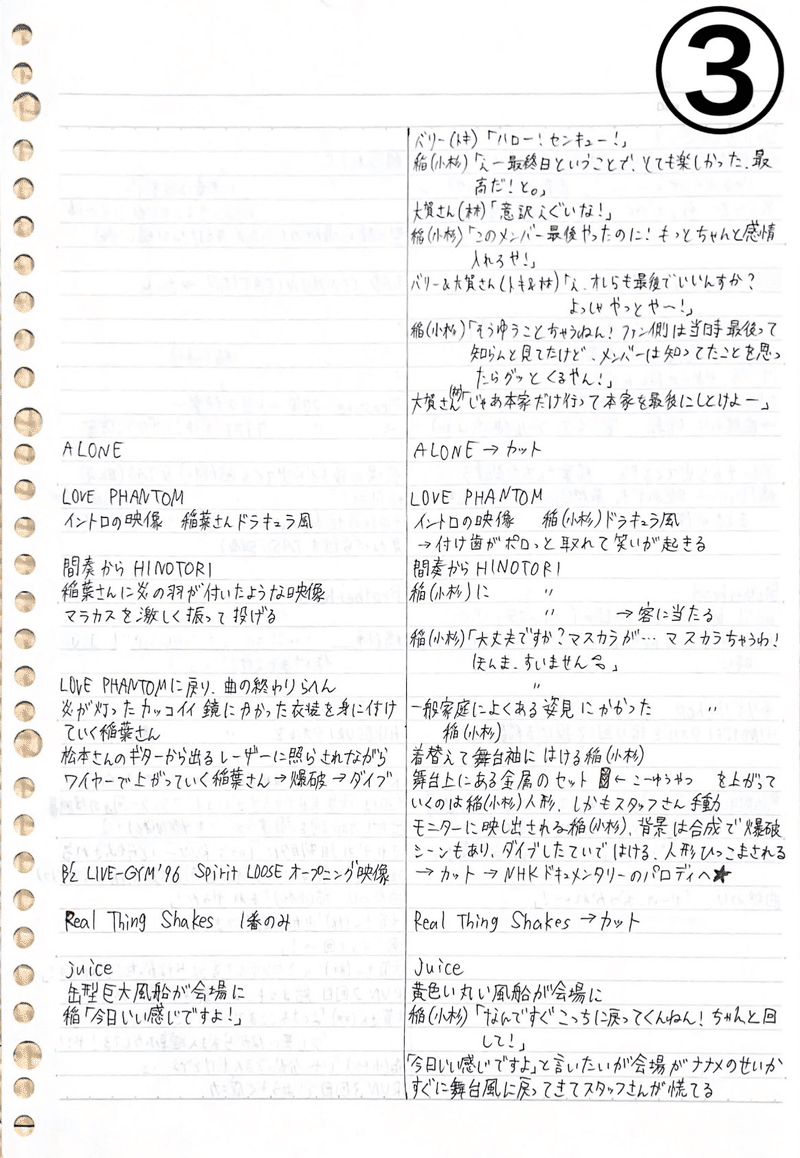 ③
バリー(トキ)「ハロー！センキュー！」
稲(小杉)「え〜最終日ということで、とても楽しかった、最
高だ！と。」
大賀さん(林)「意訳えぐいな！」
稲(小杉)「このメンバー最後やったのに！もっとちゃんと感情
入れろや！」
バリー&大賀さん(トキ&林)「え、オレらも最後でいいんすか？
よっしゃ やっとや〜！」
稲(小杉)「そうゆうことちゃうねん！ファン側は当時最後って
知らんと見てたけど、メンバーは知ってたことを思っ
たらグッとくるやん！」
大賀さん(林)「じゃあ本家だけ行って本家を最後にしとけよー」
ALONE
LOVE PHANTOM
イントロの映像　稲葉さんドラキュラ風
間奏からHINOTORI
稲葉さんに炎の羽が付いたような映像
マラカスを激しく振って投げる
LOVE PHANTOMに戻り、曲の終わりらへん
炎が灯ったカッコイイ鏡に向かった衣装を身に付け
ていく稲葉さん
松本さんのギターから出るレーザーに照らされながら
ワイヤーで上がっていく稲葉さん→爆破→ダイブ
B'z LIVE-GYM'96 Spirit LOOSE オープニング映像
Real Thing Shakes 1番のみ
juice
缶型巨大風船が会場に
稲「今日いい感じですよ！」
ALONE→カット
LOVE PHANTOM
イントロの映像　稲(小杉)ドラキュラ風
→付け歯がポロっと取れて笑いが起きる
間奏からHINOTORI
稲(小杉)に　〃
〃　→客に当たる
稲(小杉)「大丈夫ですか？マスカラが…マスカラちゃうわ！
ほんま、すいません」
〃
一般家庭によくある姿見にむかった　〃
稲(小杉)
着替えて舞台袖にはける稲(小杉)
舞台上にある金属のセット ←こーゆうやつ　を上がって
いくのは稲(小杉)人形、しかもスタッフさん手動
モニターに映し出される稲(小杉)、背景は合成で爆破
シーンもあり、ダイブしたていではける、人形ひっこまされる
→カット→NHKドキュメンタリーのパロディへ★
Real Thing Shakes→カット
Juice
黄色い丸い風船が会場に
稲(小杉)「なんですぐこっちに戻ってくんねん！ちゃんと回
して！」
「今日いい感じですよ」と言いたいが会場がナナメのせいか
すぐに舞台風に戻ってきてスタッフさんが慌てる